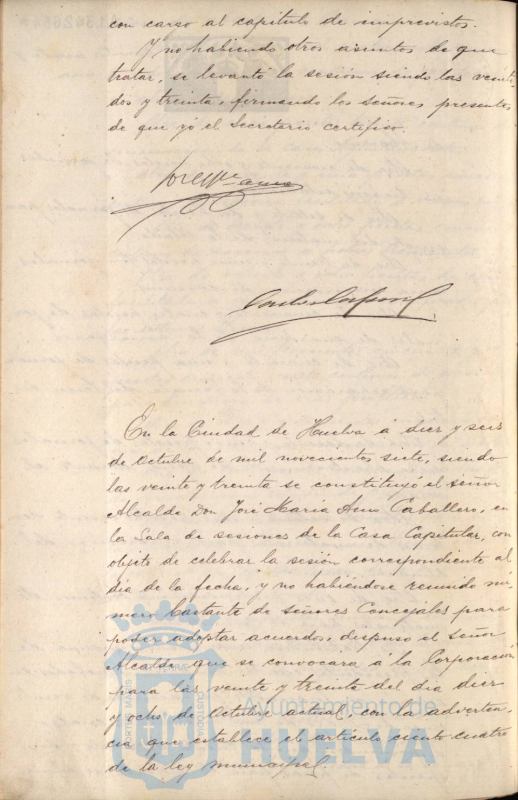 con cargo al capítulo de imprevistos.
Y no habiendo otros asuntos de que
tratar, se levantó la sesión siendo las veinti
dos y treinta, firmando los señores presentes
de que yó el Secretario certifico.
En la Ciudad de Huelva á diez y seis
de Octubre de mil novecientos siete, siendo
las veinte y treinta se constituyó el señor
Alcalde Don José María Amo Caballero, en
la Sala de sesiones de la Casa Capitular, con
objeto de celebrar la sesión correspondiente al
día de la fecha, y no habiéndose reunido nú-
mero bastante de señores Concejales para
poder adoptar acuerdos, dispuso el señor
Alcalde que se convocara á la Corporación
para las veinte y treinta del día diez
y ocho de Octubre actual, con la adverten-
cia que establece el artículo ciento cuatro
de la ley municipal.
Ayuntamiento de
HUELVA